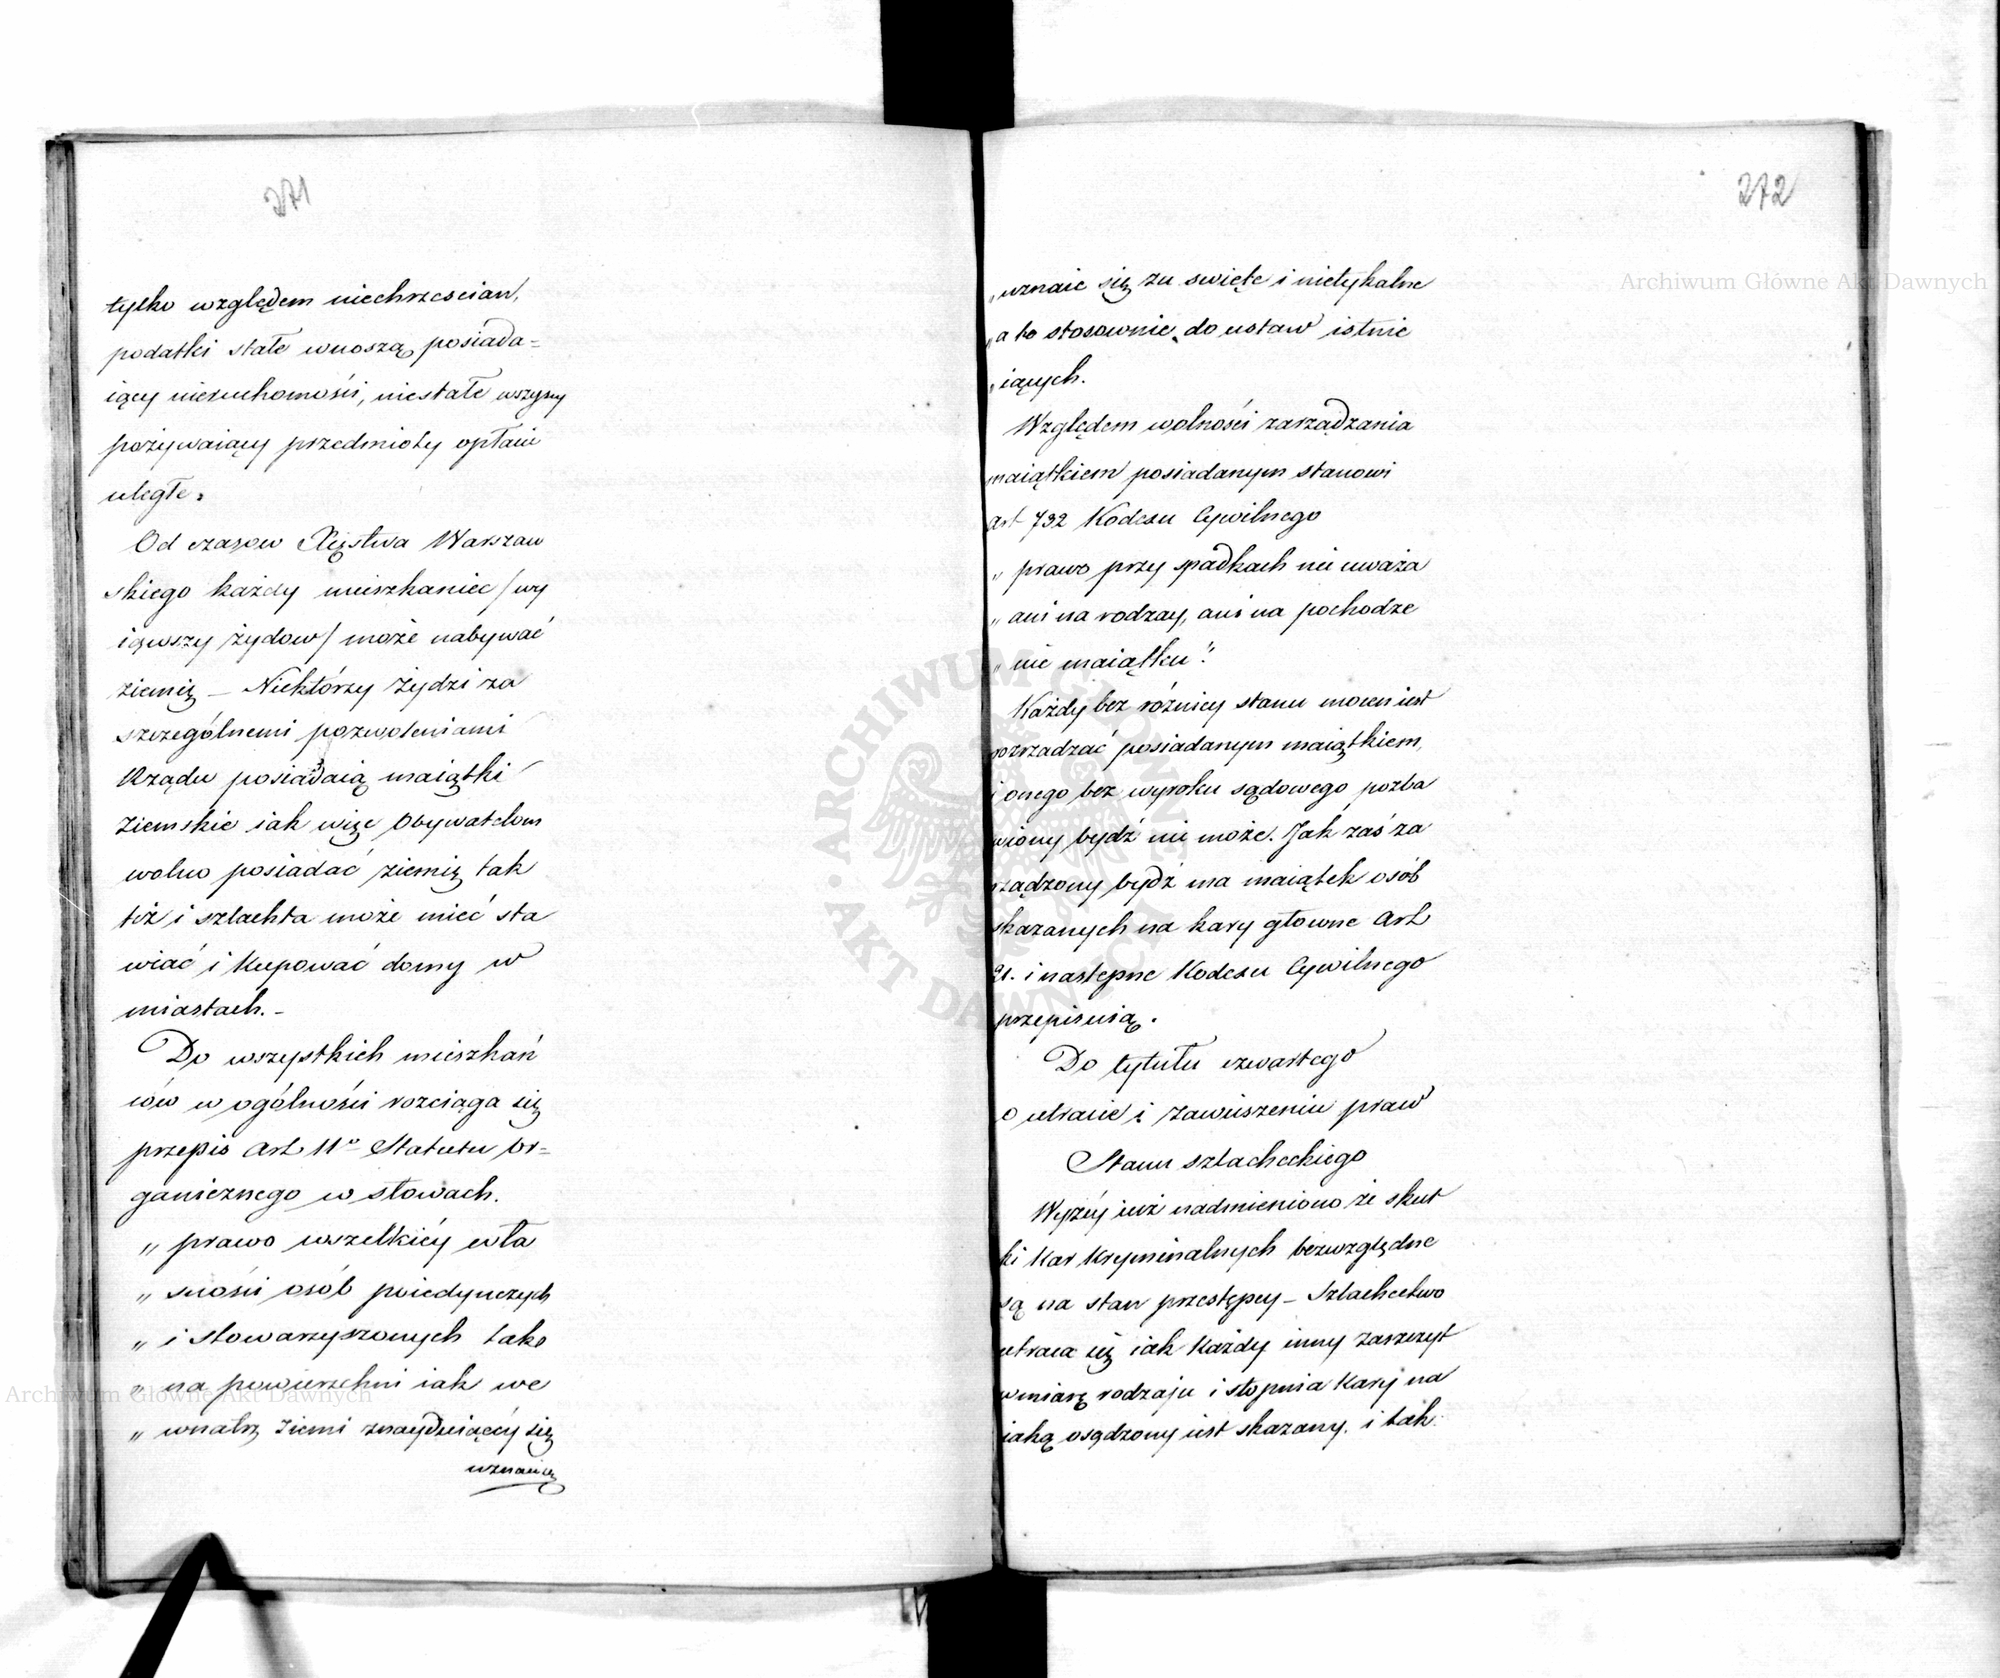 271
tylko względem niechrzescian,
podatki stałe wnoszą posiada=
iący nieruchomości, niestałe wszyscy
pożywaiący przedmioty opłacie
uległe.
Od czasow Xięstwa Warszaw
skiego każdy mieszkaniec /wy
iąwszy żydow/ może nabywać
ziemię – Niektórzy Żydzi za
szczególnemi pozwoleniami
Rządu posiadaią maiątki
Ziemskie iak więc Obywatelom
wolno posiadać ziemię tak
też i szlachta może mieć sta
wiać i kupować domy w
miastach. –
Do wszystkich mieszkań
ców w ogólności rozciąga się
przepis Art 11º Statutu Or=
ganicznego w słowach.
„ prawo wszelkiéy wła
„ sności osób poiedynczych
„ i stowarzyszonych tako
„ na powierzchni iak we
„ wnątrz Ziemi znayduiącéy się
uznaie się
272
„uznaie się za swięte i nietykalne
„a to stosownie do ustaw istnie
„iących.
Względem wolności zarządzania
maiątkiem posiadanym stanowi
Art 732 Kodexu Cywilnego
„ prawo przy spadkach nie uważa
„ ani na rodzay, ani na pochodze
„ nie maiątku".
Każdy bez różnicy stanu mocen iest
rozrzadzać posiadanym maiątkiem,
i onego bez wyroku sądowego pozba
wiony bydź nie może. Jak zaś za
rządzony bydź ma maiątek osób
skazanych na kary głowne Art
21. i następne Kodexu Cywilnego
przepisuią.
Do tytułu czwartego
O utracie i zawieszeniu praw
Stanu szlacheckiego
Wyżéy iuż nadmieniono że skut
ki kar kryminalnych bezwzględne
są na stan przestępcy – Szlachectwo
utraca się iak każdy inny zaszczyt
w miarę rodzaju i stopnia kary na
iaką osądzony iest skazany. i tak:
Archiwum Główne Akt Dawnych
Archiwum Główne Akt Dawnych
• ARCHIWUM GŁÓWNE • AKT DAWNYCH